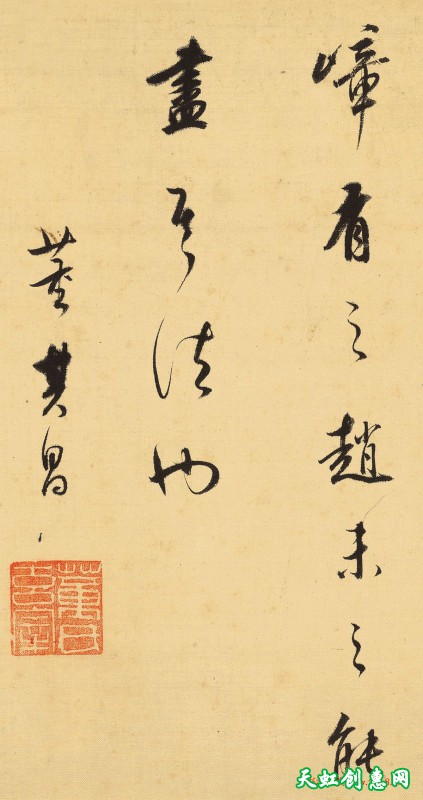 嶂有之趙未之能
盡法也
董其昌
董氏
玄宰
天虹创惠网